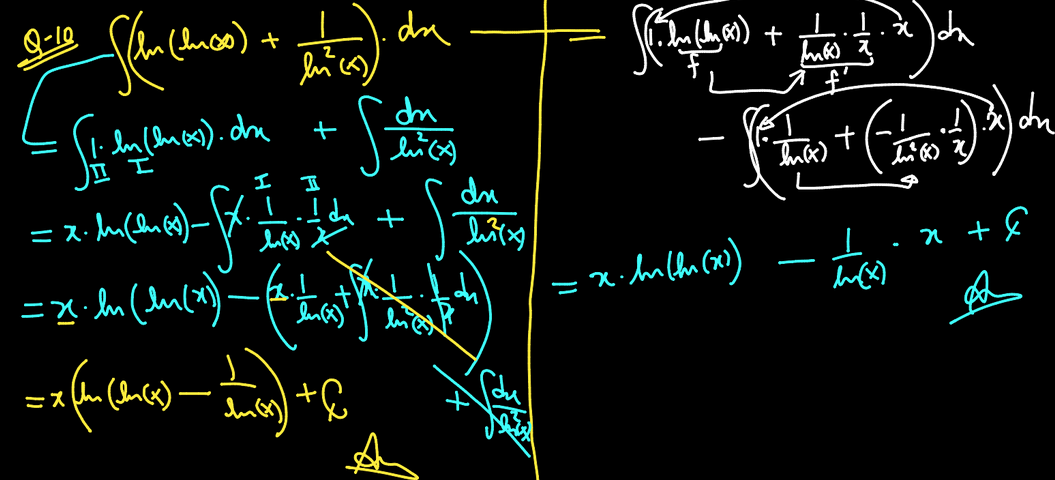 Q-10 ∫(ln(ln(x)) + 1/ln²(x)) · dx =
= ∫ 1 · ln(ln(x)) · dx + ∫ dx/ln²(x)
II I
I II
= x · ln(ln(x)) - ∫ x · 1/ln(x) · 1/x dx + ∫ dx/ln²(x)
= x · ln(ln(x)) - (x · 1/ln(x) + ∫ x · 1/ln²(x) · 1/x dx)
+ ∫ dx/ln²(x)
= x(ln(ln(x) - 1/ln(x)) + C
∫(1 · ln(ln(x)) + 1/ln(x) · 1/x · x) dx
f f'
- ∫(1 · 1/ln(x) + (-1/ln²(x) · 1/x) · x) dx
= x · ln(ln(x)) - 1/ln(x) · x + C